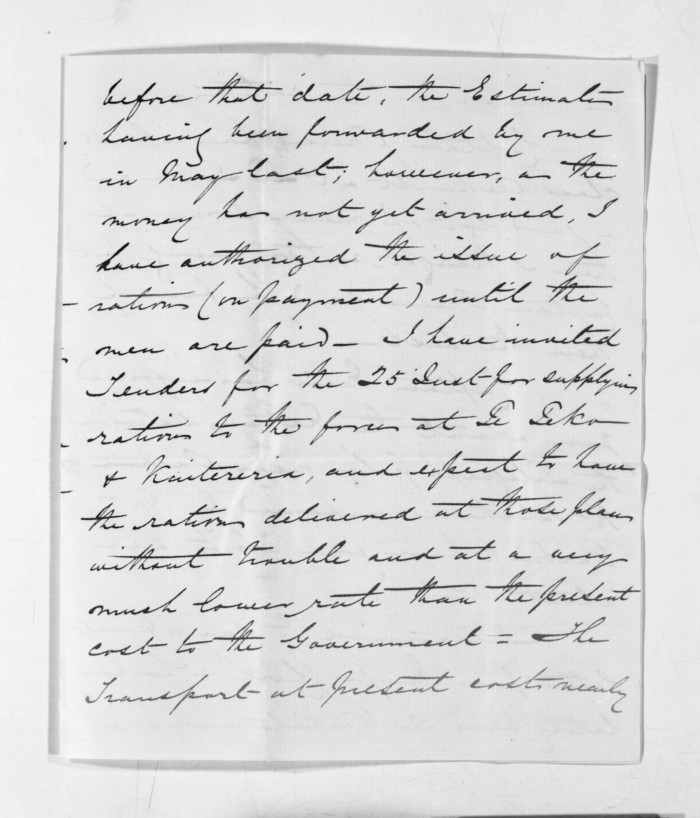 before that date, the Estimates
having been forwarded by me
in May last; however, as the
money has not yet arrived, I
have authorized the issue of
rations (on payment) until the
men are paid – I have invited
Tenders for the 25 Inst for supplying
rations to the forces at Te Teko
& Kaitereria, and expect to have
the rations delivered at those places
without trouble and at a very
much lower rate than the present
cost to the Government = The
Transport at present costs nearly